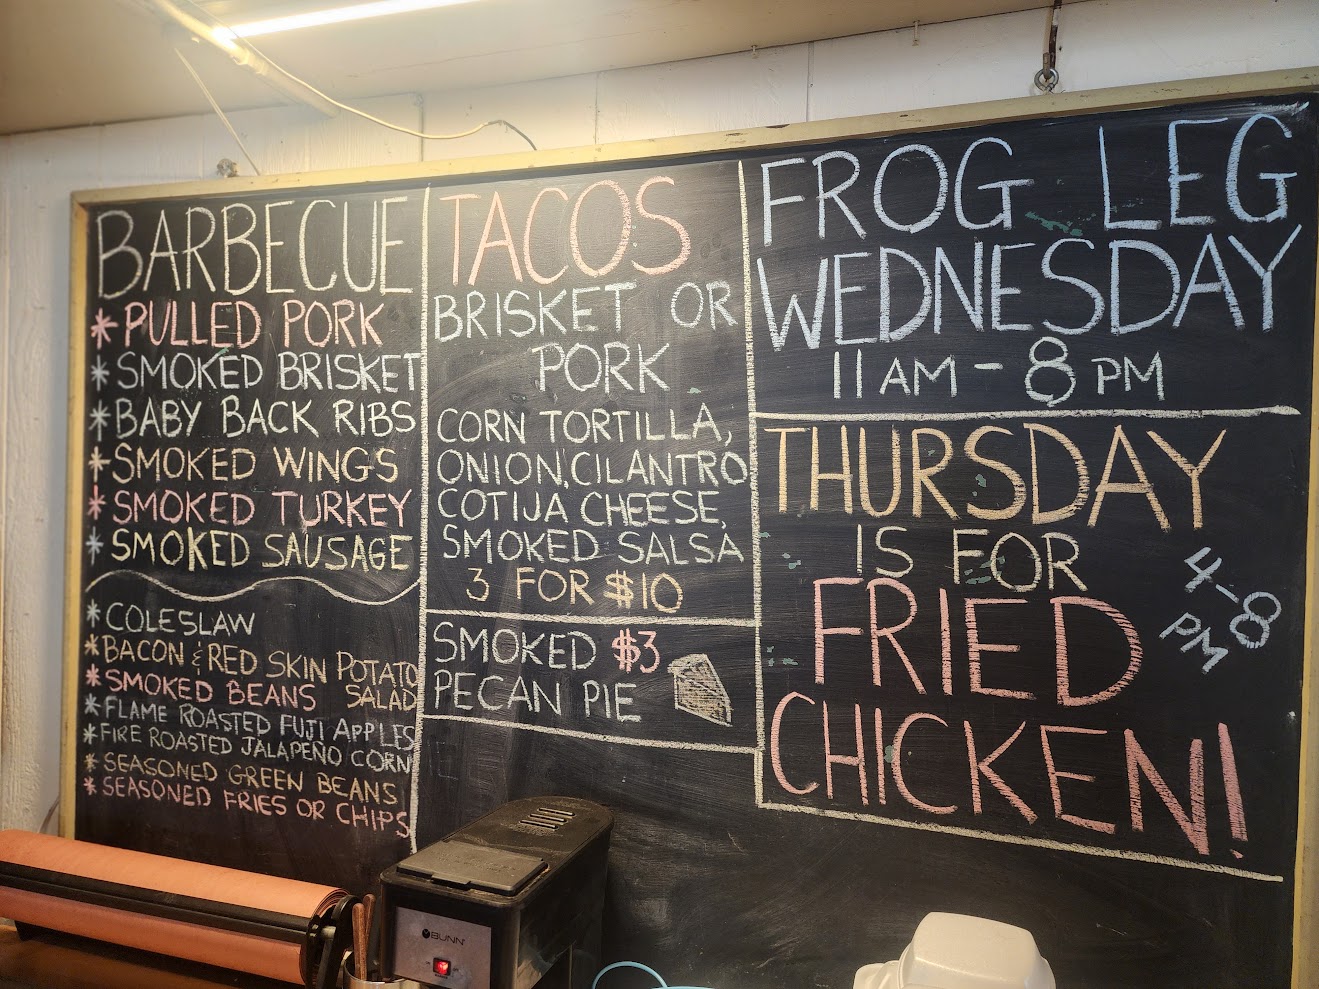 BARBECUE
* PULLED PORK
* SMOKED BRISKET
* BABY BACK RIBS
* SMOKED WINGS
* SMOKED TURKEY
* SMOKED SAUSAGE
* COLESLAW
* BACON & RED SKIN POTATO
SALAD
* SMOKED BEANS
* FLAME ROASTED FUJI APPLES
* FIRE ROASTED JALAPEÑO CORN
* SEASONED GREEN BEANS
* SEASONED FRIES OR CHIPS
TACOS
BRISKET OR
PORK
CORN TORTILLA,
ONION, CILANTRO
COTIJA CHEESE,
SMOKED SALSA
3 FOR $10
SMOKED $3
PECAN PIE
FROG LEG
WEDNESDAY
11 AM - 8 PM
THURSDAY
IS FOR
FRIED
CHICKEN!
4-8
PM
BUNN